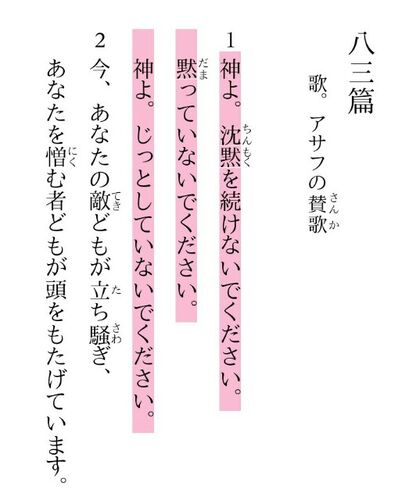 八三篇
歌。アサフの賛歌
1 神よ。沈黙を続けないでください。
黙っていないでください。
神よ。じっとしていないでください。
2 今、あなたの敵どもが立ち騒ぎ、
あなたを憎む者どもが頭をもたげています。